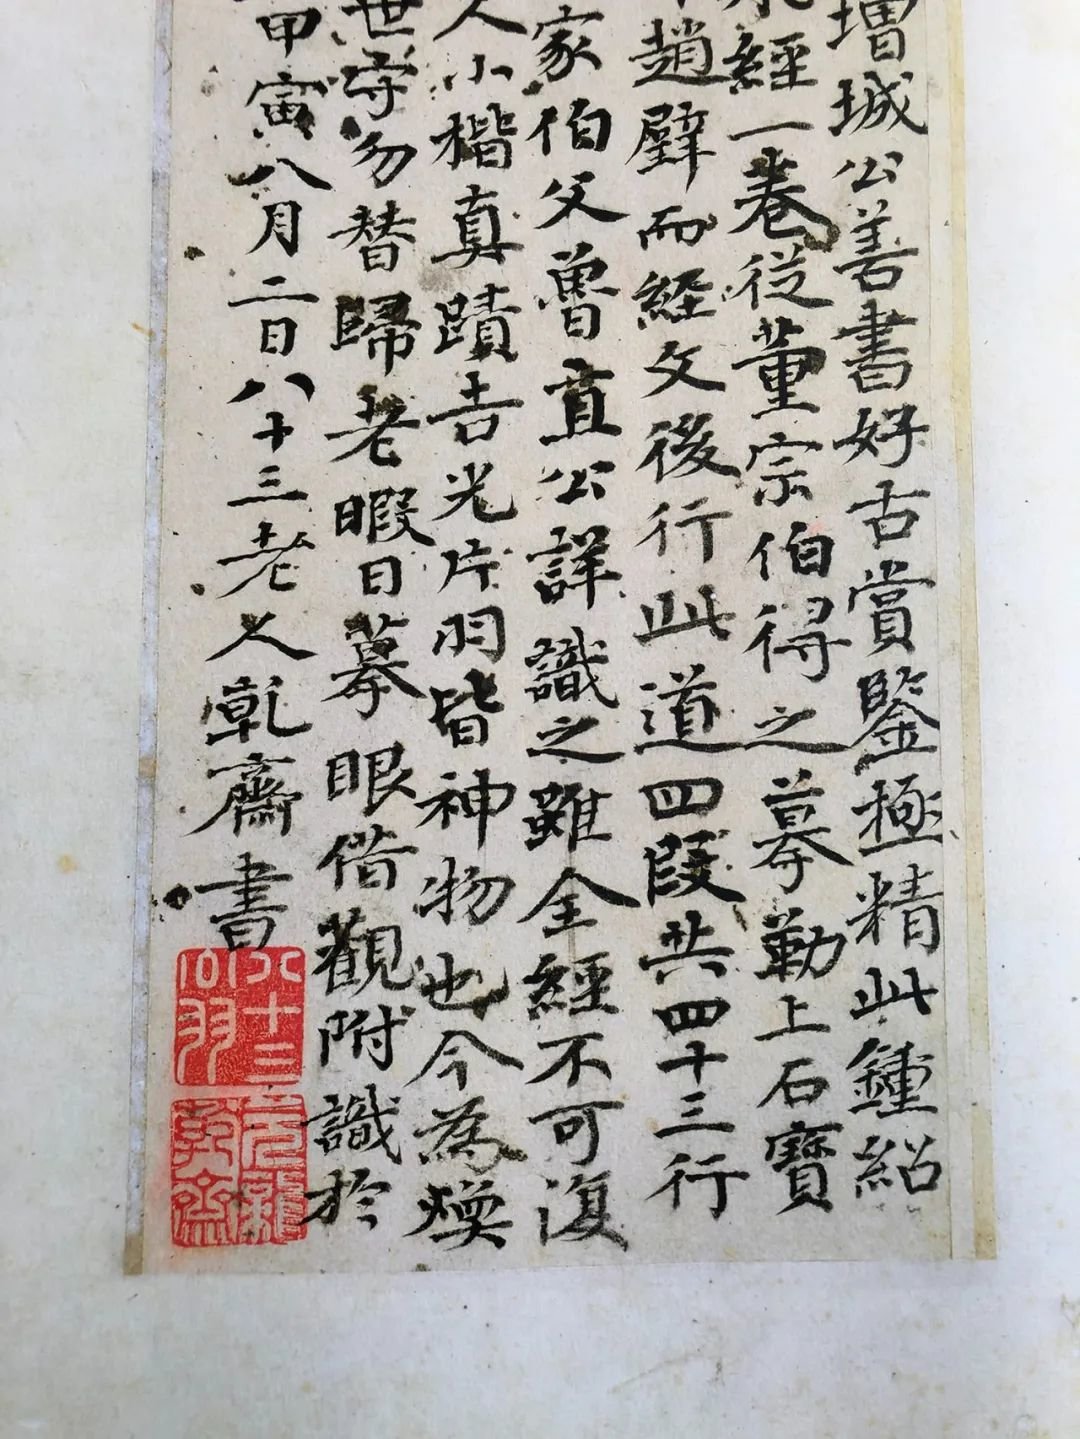 增城公善書好古賞鑒極精此鍾紹
經一卷從董宗伯得之摹勒上石寶
趙璧而經文後行此道四段共四十三行
家伯父曾直公詳識之雖全經不可復
人小楷真蹟吉光片羽皆神物也今為煥
世守勿替歸老暇日摹眼借觀附識於
甲寅八月二日八十三老人乾齋書
八十三
元龍
乾齋